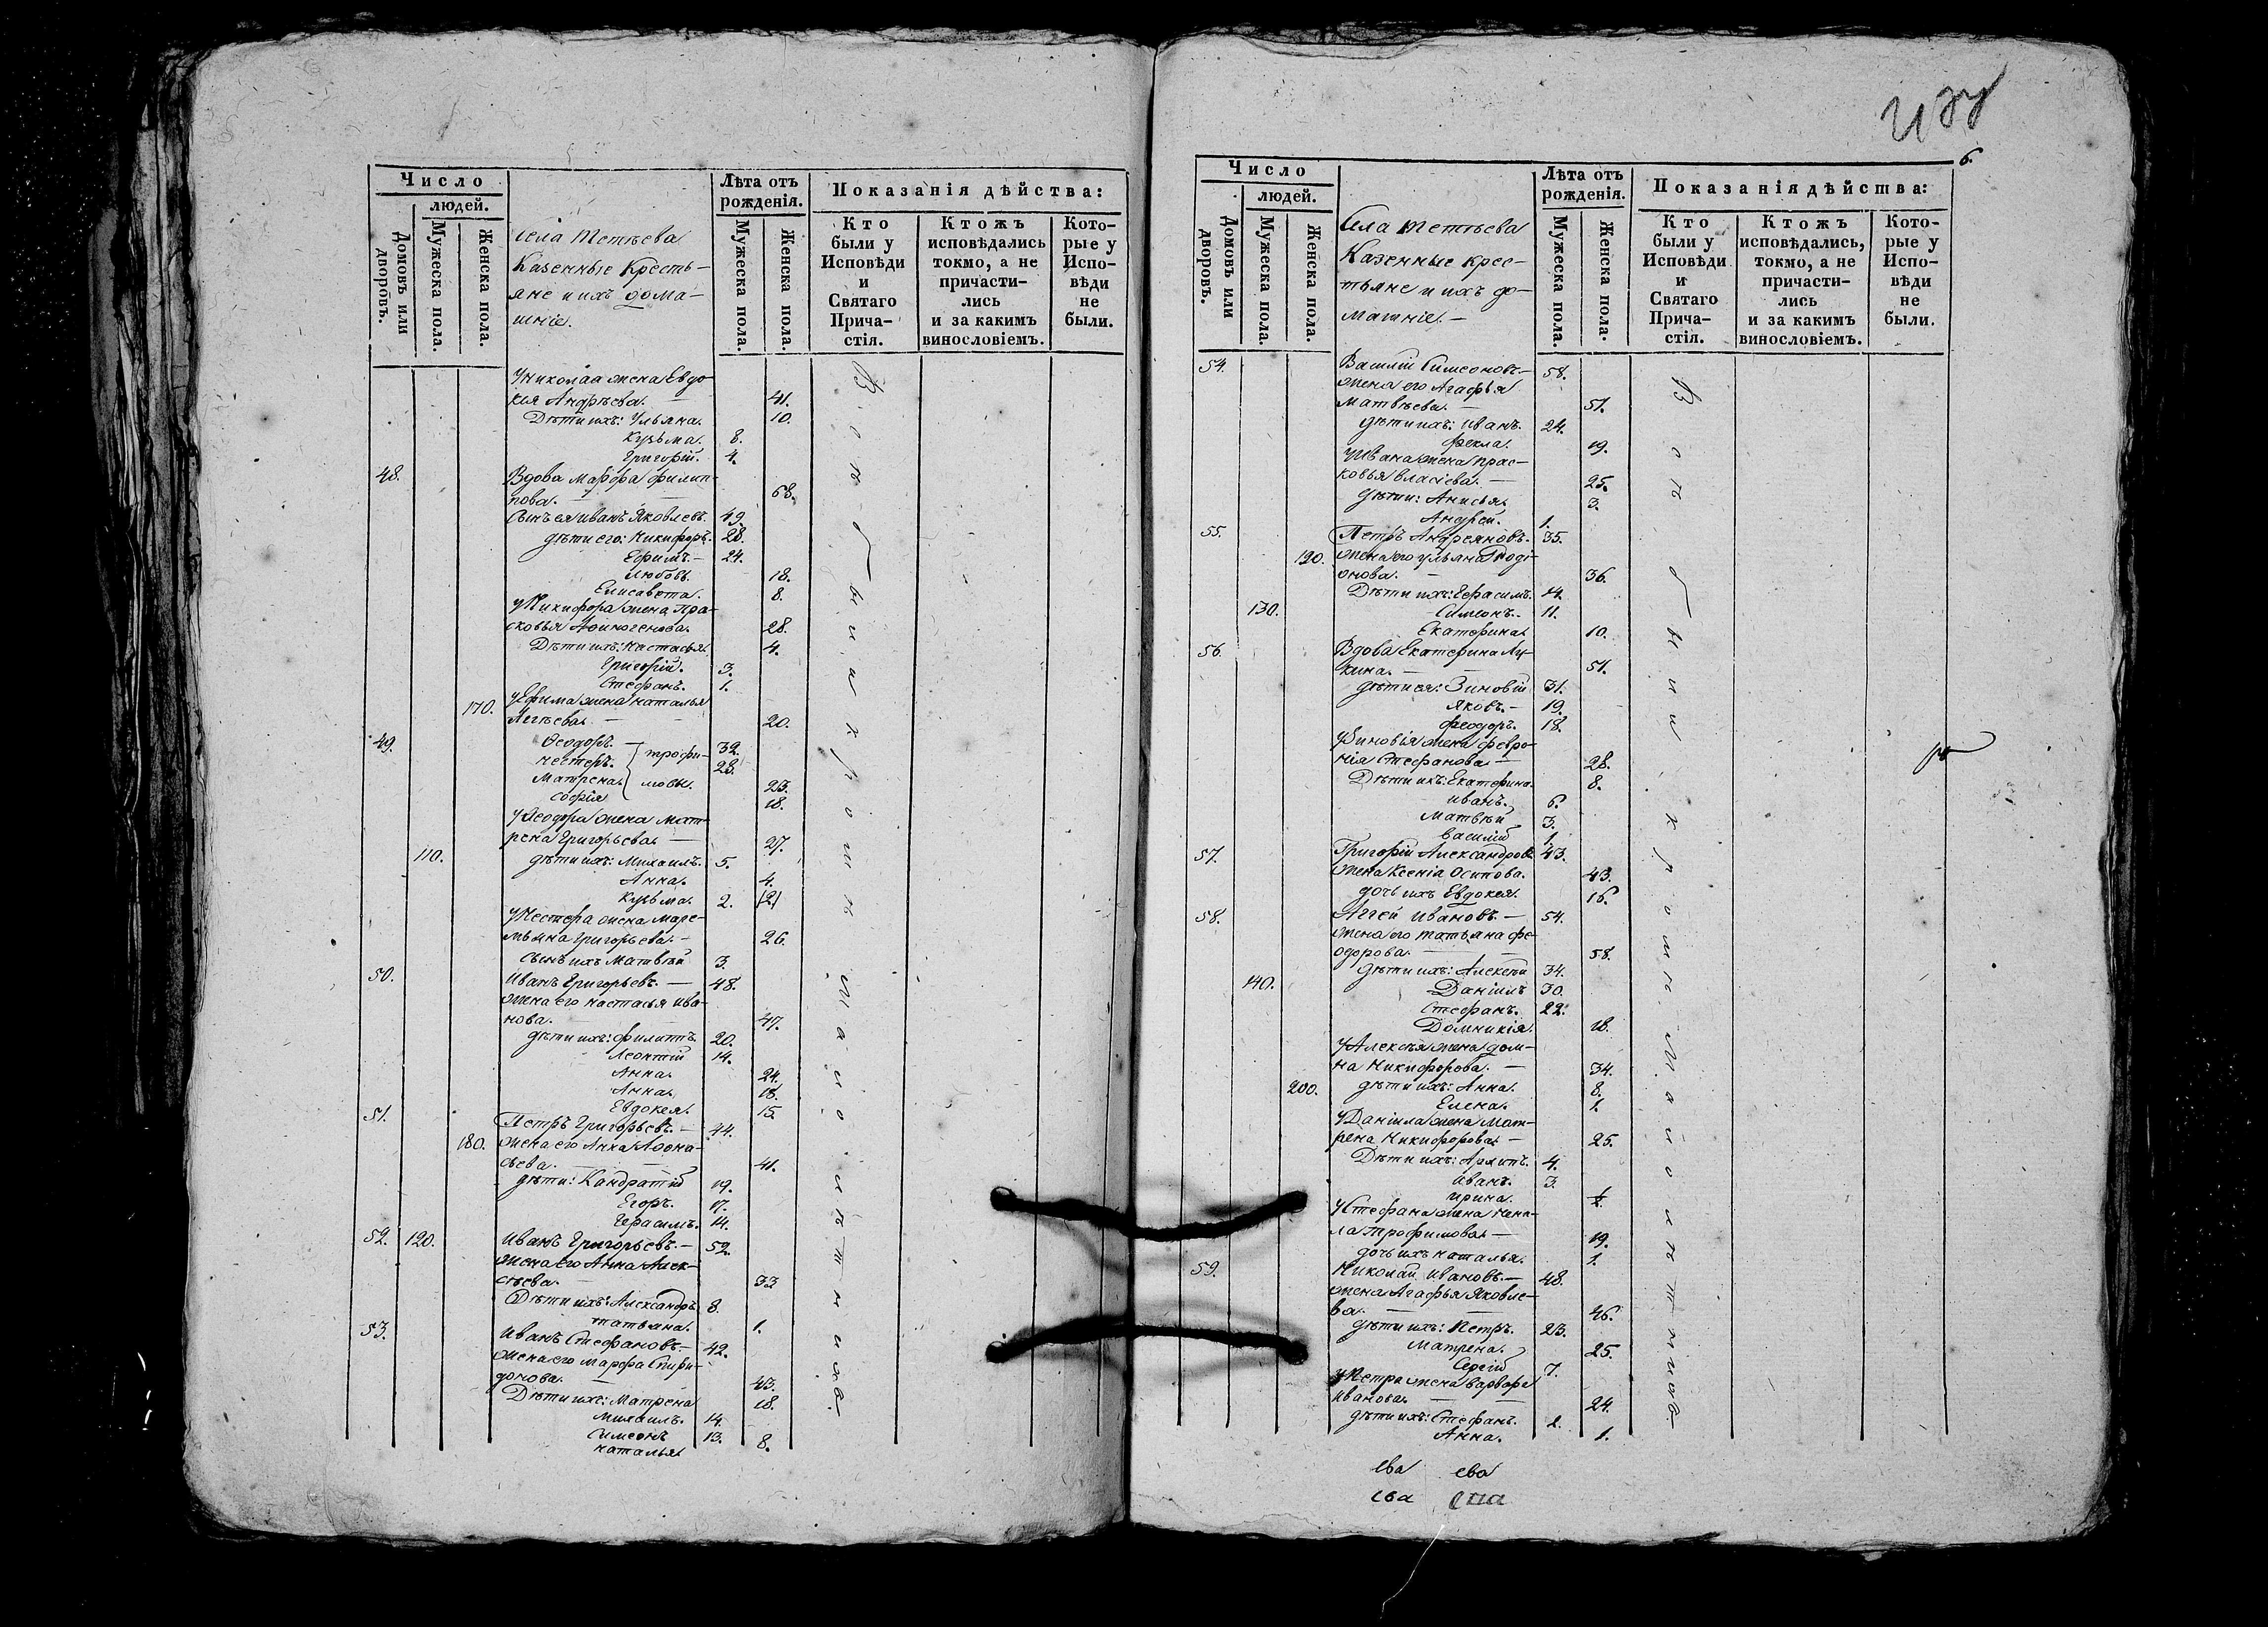 Число
людей.
Домовъ или дворовъ.
Мужеска пола.
Женска пола.
села Тетѣева
Казенные Кресть-
яне и ихъ дома-
шніе.
Лѣта отъ
рожденія.
Мужеска пола.
Женска пола.
Показанія дѣйства:
Кто
были у
Исповѣди
и
Святаго
Прича-
стія.
Ктожъ
исповѣдались
токмо, а не
причасти-
лись
и за какимъ
винословіемъ.
Кото-
рые у
Испо-
вѣди
не
были.
у Николая жена Евдо-
кея Андрѣева. — 41.
Дѣти ихъ: Ульяна. 10.
Кузьма. 8.
Григорій. 4.
48. Вдова Марфа Филип-
пова. — 68.
Сынъ ея Иванъ Яковлевъ. 49.
дѣти его: Никифоръ. 28.
Ефимъ. — 24.
Любовь. 18.
Елисавета. 8.
у Никифора жена Пра-
сковья Афиногенова. 28.
Дѣти ихъ: Настасья. 4.
Григорій. 3.
Стефанъ. 1.
у Ефима жена Наталья
170. Аггѣева. — 20.
49. Ѳеодоръ. — 32.
Нестеръ. трофи- 28.
Матрена. мовы. 23.
Софія 18.
у Ѳеодора жена Мат-
рена Григорьева. — 27.
110. дѣти ихъ: Михаилъ. 5.
Анна. 4.
Кузьма. 2. (2)
у Нестера жена Маре-
мьяна Григорьева. — 26.
сынъ ихъ Матвѣй 3.
50. Иванъ Григорьевъ. — 48.
жена его Настасья Ива-
нова. 47.
дѣти ихъ: Филиппъ. 20.
Леонтій 14.
Анна. 24.
Анна. 18.
Евдокея. 15.
51. Петръ Григорьевъ. — 44.
180. жена его Анна Афона-
сьева. — 41.
дѣти: Кандратій 19.
Егоръ. 17.
Герасимъ. 14.
52. 120. Иванъ Григорьевъ. — 52.
жена его Анна Алек-
сѣева. — 33
Дѣти ихъ: Александръ 8.
Татьяна. 1.
53. Иванъ Стефановъ. — 42.
жена его Марфа Спири-
донова. — 43.
Дѣти ихъ: Матрена 18.
Михаилъ. 14.
Симеонъ 13.
Наталья 8.
6.
Число
людей.
Домовъ или дворовъ.
Мужеска пола.
Женска пола.
Села Тетѣева
Казенные Крес-
тьяне и ихъ до-
машніе. —
Лѣта отъ
рожденія.
Мужеска пола.
Женска пола.
Показанія дѣйства:
Кто
были у
Исповѣди
и
Святаго
Прича-
стія.
Ктожъ
исповѣдались,
токмо, а не
причасти-
лись
и за какимъ
винословіемъ.
Кото-
рые у
Испо-
вѣди
не
были.
54. Василій Симеоновъ. — 58.
жена его Агафья
Матвѣева. — 51.
дѣти ихъ: Иванъ. 24.
Фекла. 19.
у Ивана жена Прас-
ковья Власіева. — 25.
дѣти: Анисья. 3.
Андрей. 1.
55. Петръ Андреяновъ. 35.
190. жена его Ульяна Роді-
онова. — 36.
Дѣти ихъ: Герасимъ. 14.
130. Симеонъ. 11.
Екатерина. 10.
56. Вдова Екатерина Лу-
кина. — 51.
дѣти ея: Зиновій 31.
Яковъ. — 19.
Феодоръ. 18.
у Зиновія жена Февро-
нія Стефанова — 28.
Дѣти ихъ: Екатерина. 8.
Иванъ. 6.
Матвѣй 3.
Василій 1.
57. Григорій Александровъ 43.
жена Ксенія Осипова. 43.
дочь ихъ Евдокея. 16.
58. Аггей Ивановъ. — 54.
жена его Татьяна Фе-
одорова. — 58.
дѣти ихъ: Алексѣй 34.
140. Даніилъ 30.
Стефанъ. 22.
Домникія. 18.
у Алексѣя жена Дом-
на Никифорова. — 34.
200. дѣти ихъ: Анна. 8.
Елена. 1.
у Даніила жена Мат-
рена Никифорова. — 25.
Дѣти ихъ: Архипъ. 4.
Иванъ. 3.
Ирина.
у Стефана жена Нени-
ла Трофимова. — 19.
дочь ихъ Наталья. 1.
59. Николай Ивановъ. — 48.
жена Агафья Яковле-
ва. — 46.
дѣти ихъ: Петръ. 23.
Матрена. 25.
Сергій 7.
у Петра жена Варвара
Иванова. — 24.
дѣти ихъ: Стефанъ. 2.
Анна. 1.
ева ева
ева